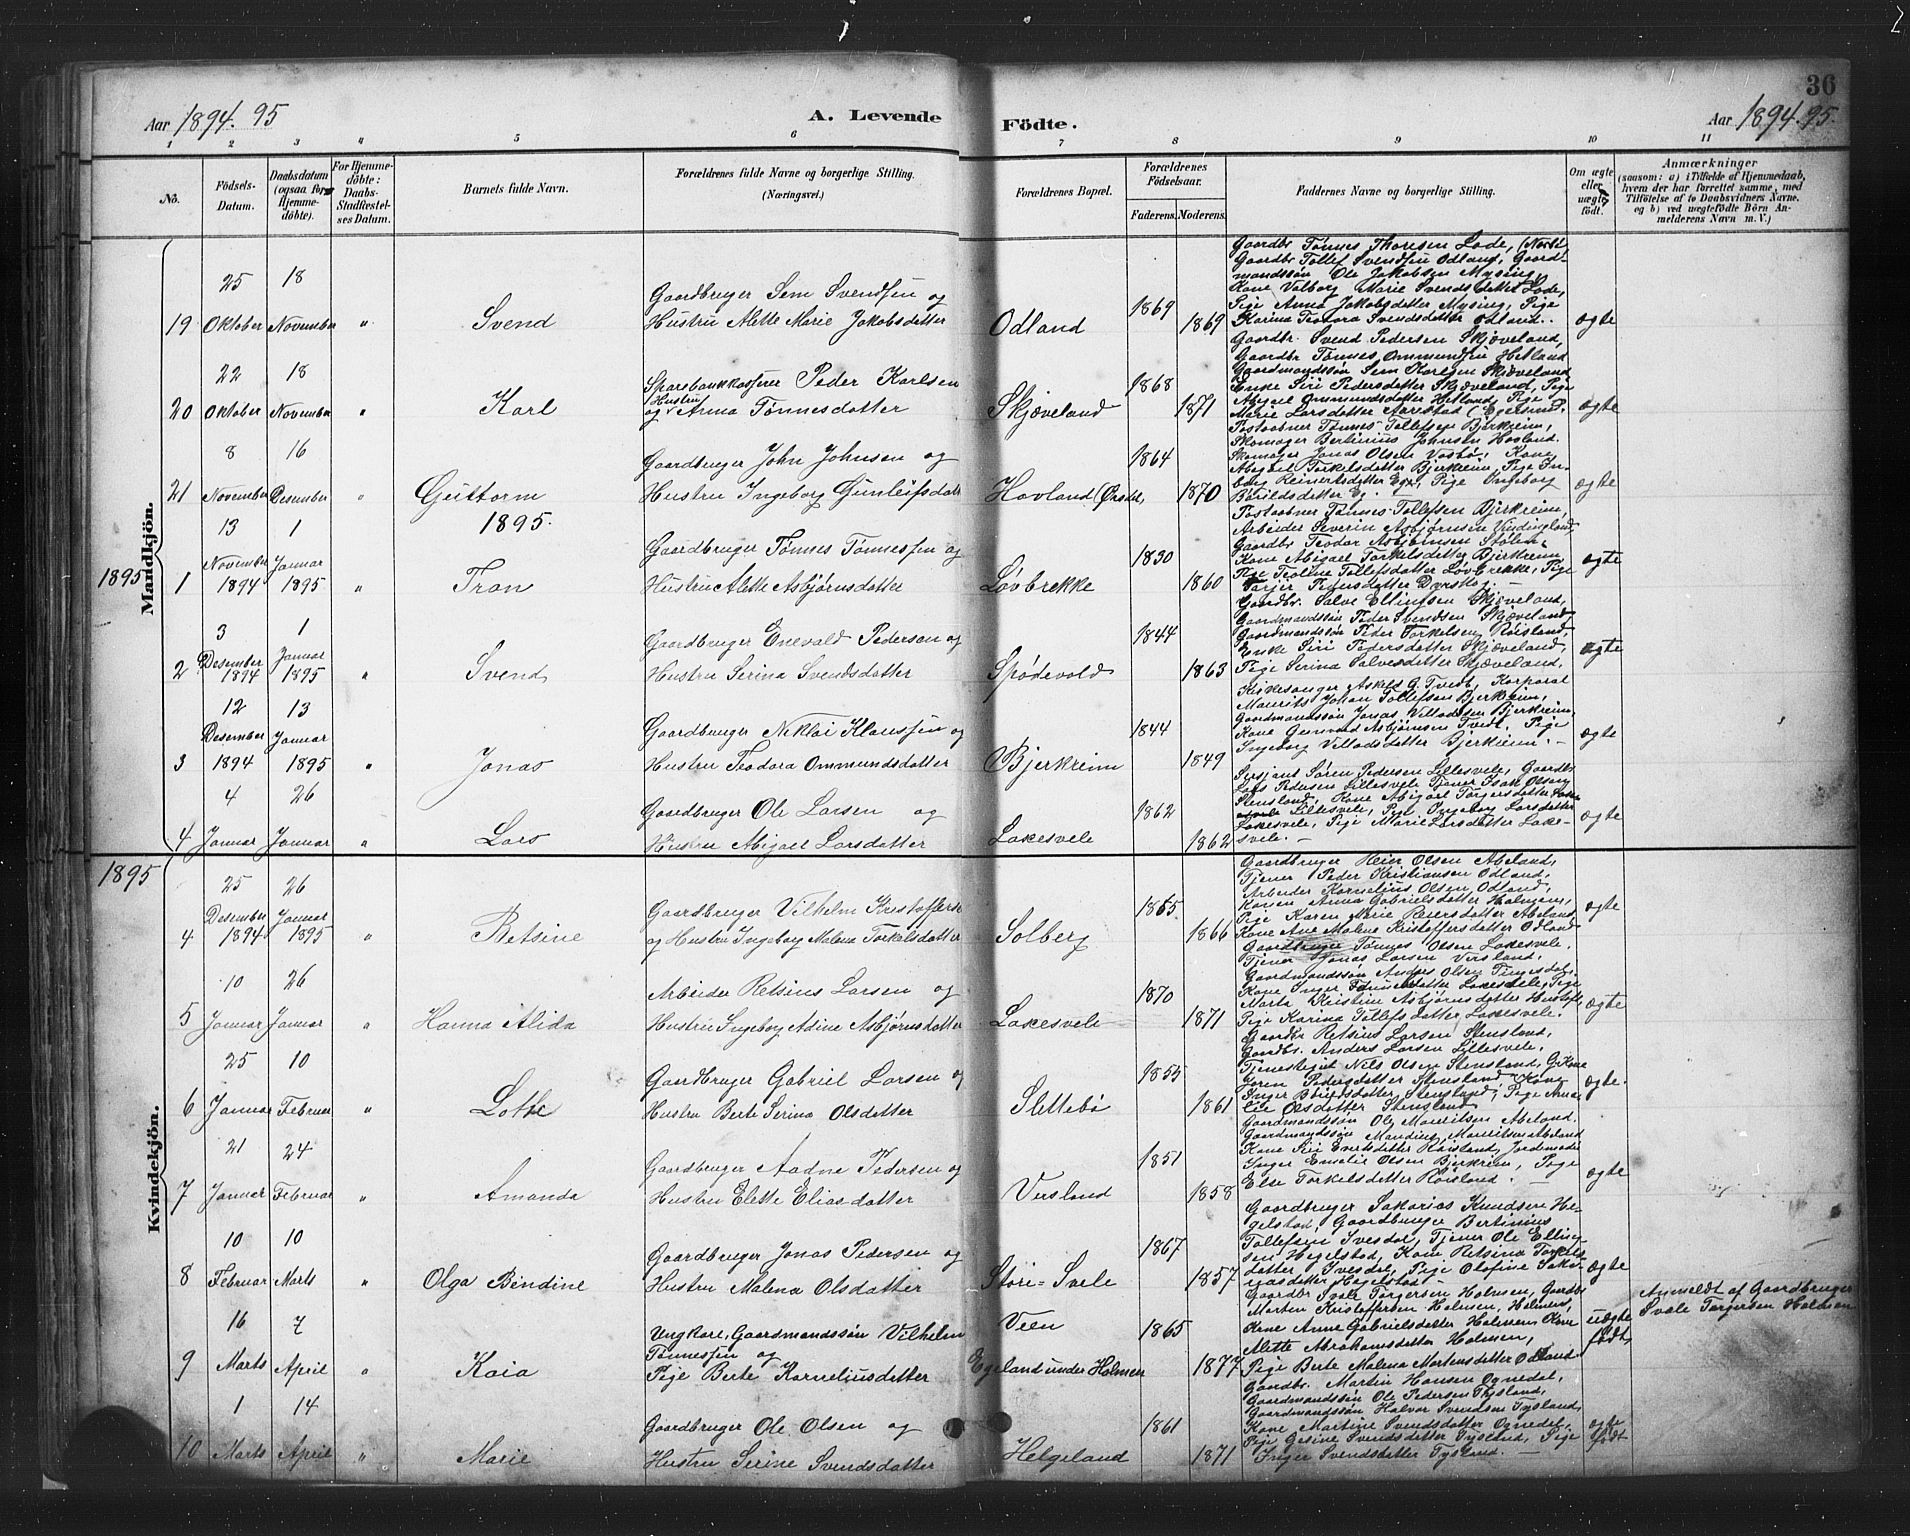 36
Aar 1894. 95
A. Levende
Födte.
Aar 1894. 95.
1 2 3 4 5 6 7 8 9 10 11
No.
Födsels-Datum.
Daabsdatum (ogsaa for Hjemme-döbte).
For Hjemme-döbte: Daabs-Stadfæstelses Datum.
Barnets fulde Navn.
Forældrenes fulde Navne og borgerlige Stilling. (Næringsvei.)
Forældrenes Bopæl.
Forældrenes Födselsaar.
Faderens. Moderens.
Faddernes Navne og borgerlige Stilling.
Om ægte eller uægte födt.
Anmærkninger
(saasom: a) i Tilfælde af Hjemmedaab, hvem der har forrettet samme, med Tilföielse af to Daabsvidners Navne, og b) ved uægtefödte Börn Anmelderens Navn m. V.)
Mandkjön.
19 25 Oktober 18 November " Svend
Gaardbruger Sem Svendsen og
Hustru Alette Marie Jakobsdatter
Odland 1869 1869
Gaardbr Tønnes Thoresen Lode,
Gaardbr Tollef Svendsen Odland, Gaard-
mandssön Ole Jakobsen Mysing,
Kone Valborg Marie Svendsdatter Lode,
Pige Anna Jakobsdatter Mysing, Pige
Karina Teodora Svendsdatter Odland.
ægte
20 22 Oktober 18 November " Karl
Sparebankkasserer Peder Karlsen
og Hustru Anna Tønnesdatter
Skjæveland 1868 1871
Gaardbr. Svend Pedersen Skjæveland,
Gaardbr Tønnes Ommundsen Hetland
Gaardmandssön Sem Karlsen Skjæveland
Enke Siri Pedersdatter Skjæveland, Pige
Abigael Ommundsdatter Hetland, Pige
Marie Larsdatter Aarestad (Egersund.
ægte
21 8 November 16 Desember " Guttorm
Gaardbruger John Johnsen og
Hustru Ingeborg Gunleifsdatt
Hovland (Ørsdal, 1864 1870
Postaabner Tønnes Tollefsen Bjerkreim,
Skomager Bertinius Johnsen Hovland.
Skomager Jonas Olsen Vasbø, Kone
Abigael Torkelsdatter Bjerkreim, Pige In-
borg Reinertsdatter Ege, Pige Ingeborg
Baraldsdatter Eg. —
ægte
1895.
1895
1 13 November 1894 1 Januar 1895 " Tron
Gaardbruger Tønnes Tønnessen og
Hustru Alette Asbjørnsdatter
Løvbrekke 1830 1860
Postaabner Tønnes Tollefsen Bjerkreim,
Arbeider Severin Asbjørnsen Vindingland,
Gaardbr Teodor Asbjørnsen Stølen,
Kone Abigael Torkelsdatter Bjerkreim
Pige Teoline Tollefsdatter Løvbrekke, Pige
Tarjer Pedersdatter —
ægte
2 3 Desember 1894 1 Januar 1895 " Svend
Gaardbruger Enevald Pedersen og
Hustru Serina Svendsdatter
Spödevold 1844 1863
Gaardbr. Salve Ellingsen Skjæveland,
Gaardmandssön Peder Svendsen Skjæveland,
Gaardmandssön Peder Torkelsen Røisland,
Enke Siri Pedersdatter Skjæveland,
Pige Serina Salvesdatter Skjæveland,
ægte
3 12 Desember 1894 13 Januar 1895 " Jonas
Gaardbruger Niklai Klaussen og
Hustru Teodora Ommundsdatter
Bjerkreim 1844 1849
Kirkesanger Askild G. Tvedt, Korporal
Maurits Johan Tollefsen Bjerkreim,
Gaardmandssön Jonas Villadsen Bjerkreim,
Kone Gunvald Asbjørnsen Tvedt, Pige
Ingeborg Villadsdatter Bjerkreim. —
ægte
4 4 Januar 26 Januar " Lars
Gaardbruger Ole Larsen og
Hustru Abigael Larsdatter
Lakesvele 1862 1862
Sersjant Søren Pedersen Lillesvele, Gaardbr
Lars Pedersen Lillesvele, Tjener Isak Olsen
Stensland, Kone Abigael Torgersdatter
Lillesvele, Pige Ingeborg Larsdatter
Lakesvele, Pige Marie Larsdatter Lake-
svele. —
ægte
1895
Kvindekjön.
4 25 Desember 1894 26 Januar 1895 " Betsine
Gaardbruger Vilhelm Kristoffers
og Hustru Ingeborg Malena Torkelsdatter
Solberg 1865 1866
Gaardbruger Heier Olsen Abeland,
Tjener Peder Kristiansen Odland,
Arbeider Kornelius Olsen Odland,
Konen Anna Gabrielsdatter Holmen,
Pige Karen Marie Reiersdatter Abeland
Kone Ane Malene Kristoffersdatter Odland
ægte
5 10 Januar 26 Januar " Hanna Alida
Arbeider Retsius Larsen og
Hustru Ingeborg Adine Asbjørnsdatter
Lakesvele 1870 1871
Gaardbruger Tønnes Olsen Lakesvele,
Tjener Jonas Larsen Versland,
Gaardmandssön Anders Olsen Tinnesdal,
Kone Inger datter Lakesvele, Pige
Marta Kristine Asbjørnsdatter
Pige Karina Tollefsdatter Lakesvele.
ægte
6 25 Januar 10 Februar " Lotte
Gaardbruger Gabriel Larsen og
Hustru Berte Serina Olsdatter
Slettebö 1855 1861
Gaardbr Retsius Larsen Stensland,
Gaardbr. Anders Larsen Lillesvele,
Tjenestegut Nils Olsen Stensland, G. Kone
Joren Pedersdatter Stensland, Kone
Inger Baardsdatter Stensland, Pige Ama-
lie Olsdatter Stensland
ægte.
7 21 Januar 24 Februar " Amanda
Gaardbruger Aadne Pedersen og
Hustru Elette Eliasdatter
Versland 1851 1858
Gaardmandssön Ole Mauritsen Abeland.
Gaardmandssön Manding Mauritsen Abeland
Kone Siri Enoksdatter Røisland, Jordemoder
Inger Emelie Olsen Bjerkreim, Pige
Else Torkelsdatter Røisland. —
ægte
8 10 Februar 10 Marts " Olga Bendine
Gaardbruger Jonas Pedersen og
Hustru Malena Olsdatter
Store-Svele 1867 1857
Gaardbruger Sakarias Knudsen He-
gelstad, Gaardbruger Bertinius
Tollefsen Ivesdal, Tjener Ole Ellin-
sen Hegelstad, Kone Retsina Torkels
datter Ivesdal, Pige Olofine Saka-
riasdatter Hegelstad —
ægte
9 16 Marts 7 April " Kaia
Ungkarl, Gaardmandssön Vilhelm
Tønnessen og
Pige Berte Korneliusdatter
Veen
Egeland under Holmen
1865 1877
Gaardbr Svale Torgersen Holmen, Gaardbr
Morten Kristoffersen Holmen, Holmen,
Kone Anne Gabrielsdatter Holmen, Kone
Alette Abrahamsdatter Holmen,
Pige Berte Malena Mortensdatter Odland
uægte födt,
Anmeldt af Gaardbruger
Svale Torgersen Holmen
10 1 Marts 14 April " Marie
Gaardbruger Ole Olsen og
Hustru Serine Svendsdatter
Helgeland 1861 1871
Gaardbr. Martin Hansen Ognedal,
Gaardmandssön Ole Pedersen Tysland,
Gaardmandssön Halvor Svendsen Tysland,
Kone Martine Svendsdatter Ognedal,
Pige Gesine Svendsdatter Tysland, Pige
Inger Svendsdatter Tysland. —
ægte födt